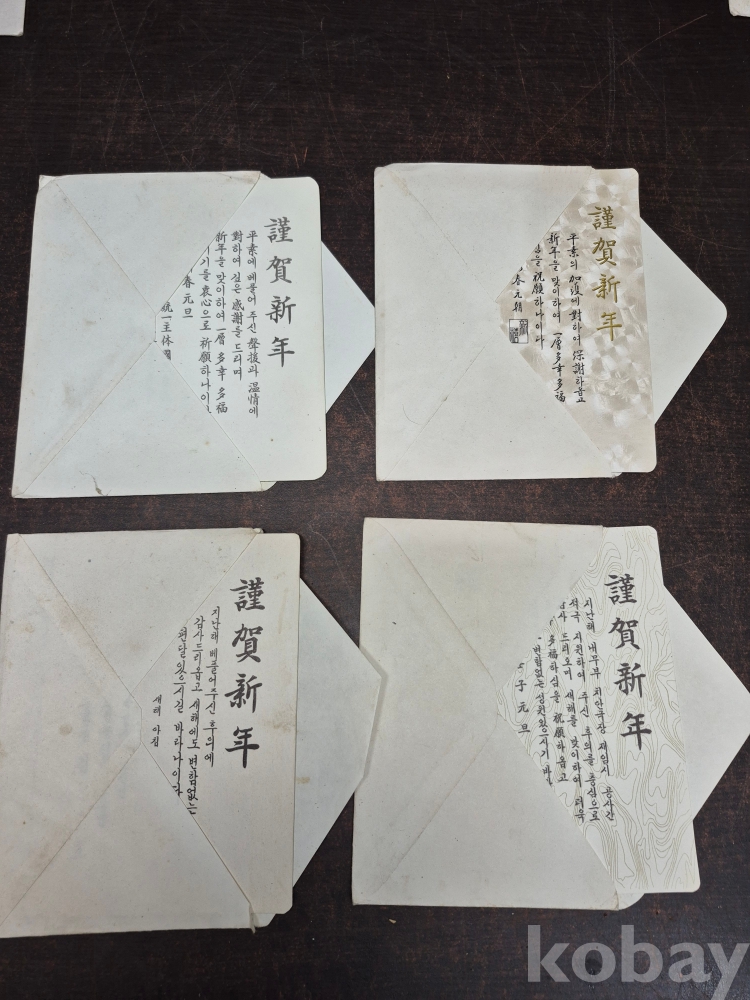 謹賀新年
平素에 베풀어 주신 聲援과 溫情에
對하여 깊은 感謝를 드리며
新年을 맞이하여 一層 多幸 多福
기를 衷心으로 祈願하나이
春 元旦
統一主体
謹賀新年
平素의 加護에 對하여 深謝하옵고
新年을 맞이하여 一層多幸多福
을 祝願하나이다
春 元朝
謹賀新年
지난해 베풀어주신 후의에
감사 드리옵고 새해에도 변함없는
편달있으시길 바라나이다
새해 아침
謹賀新年
지난해 내무부 치안국장 재임시 공사간
적극 지원하여 주신 후의를 충심으로
감사 드리오며 새해를 맞이하여 더욱
多福하심을 祝願하옵고
변함없는 성원있으시기 바라
子 元旦
kobay